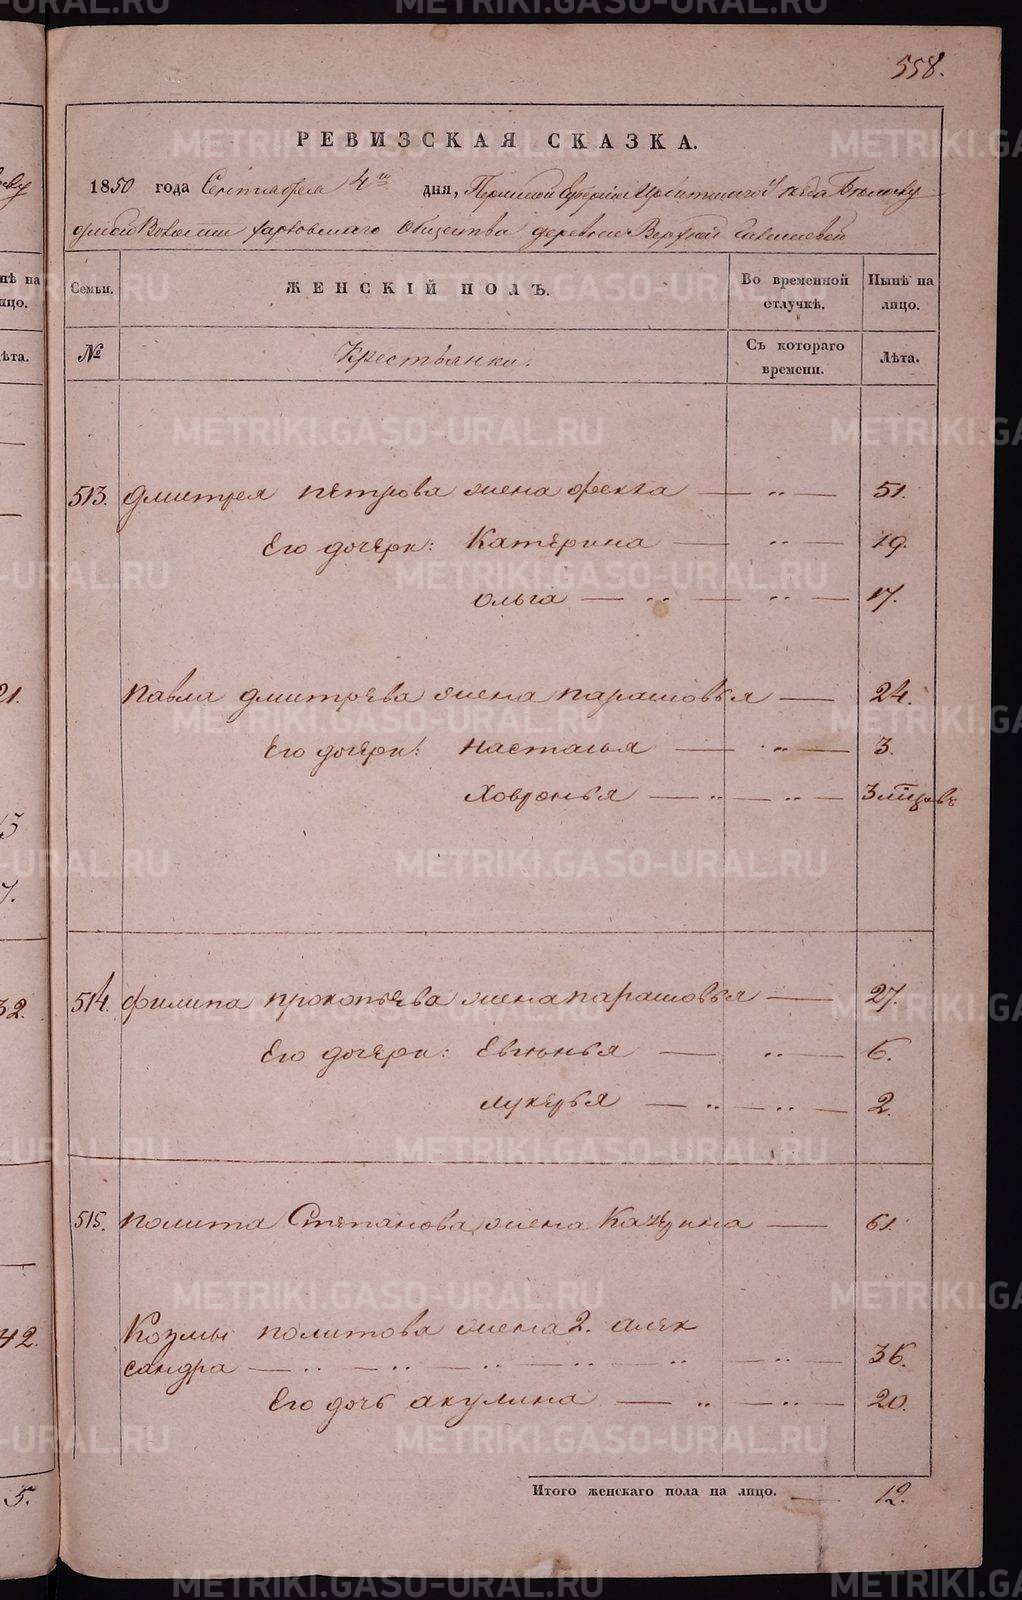 558.
РЕВИЗСКАЯ СКАЗКА.
1850 года Сентября 4го дня, Пермской Губернии Ирбитского Уѣзда
Волости Харловского Общества деревни Верхней
Семьи. ЖЕНСКІЙ ПОЛЪ. Во временной отлучкѣ. Нынѣ на лицо.
№ Крестьянки. Съ котораго времени. Лѣта.
513. Дмитрея Петрова жена Фекла — „ — 51.
Его дочери: Катерина — „ — 19.
Ольга — „ — „ — 17.
Павла Дмитрева жена Парасковья — 24.
Его дочери: Настасья — „ — 3.
Ховронья — „ — „ — 3
514. Филипа Прокопьева жена Парасковья — 27.
Его дочери: Евгинья — „ — 6.
Лукерья — „ — „ — 2.
515. Полита Степанова жена Катерина — 61.
Козмы Политова жена 2. Алек
сандра — „ — „ — „ — „ — „ — 36.
Его дочь Акулина — „ — „ — 20.
Итого женскаго пола на лицо. — 12.
нѣ на
ицо.
ѣта.
21.
7.
32.
42.
5.
METRIKI.GASO-URAL.RU